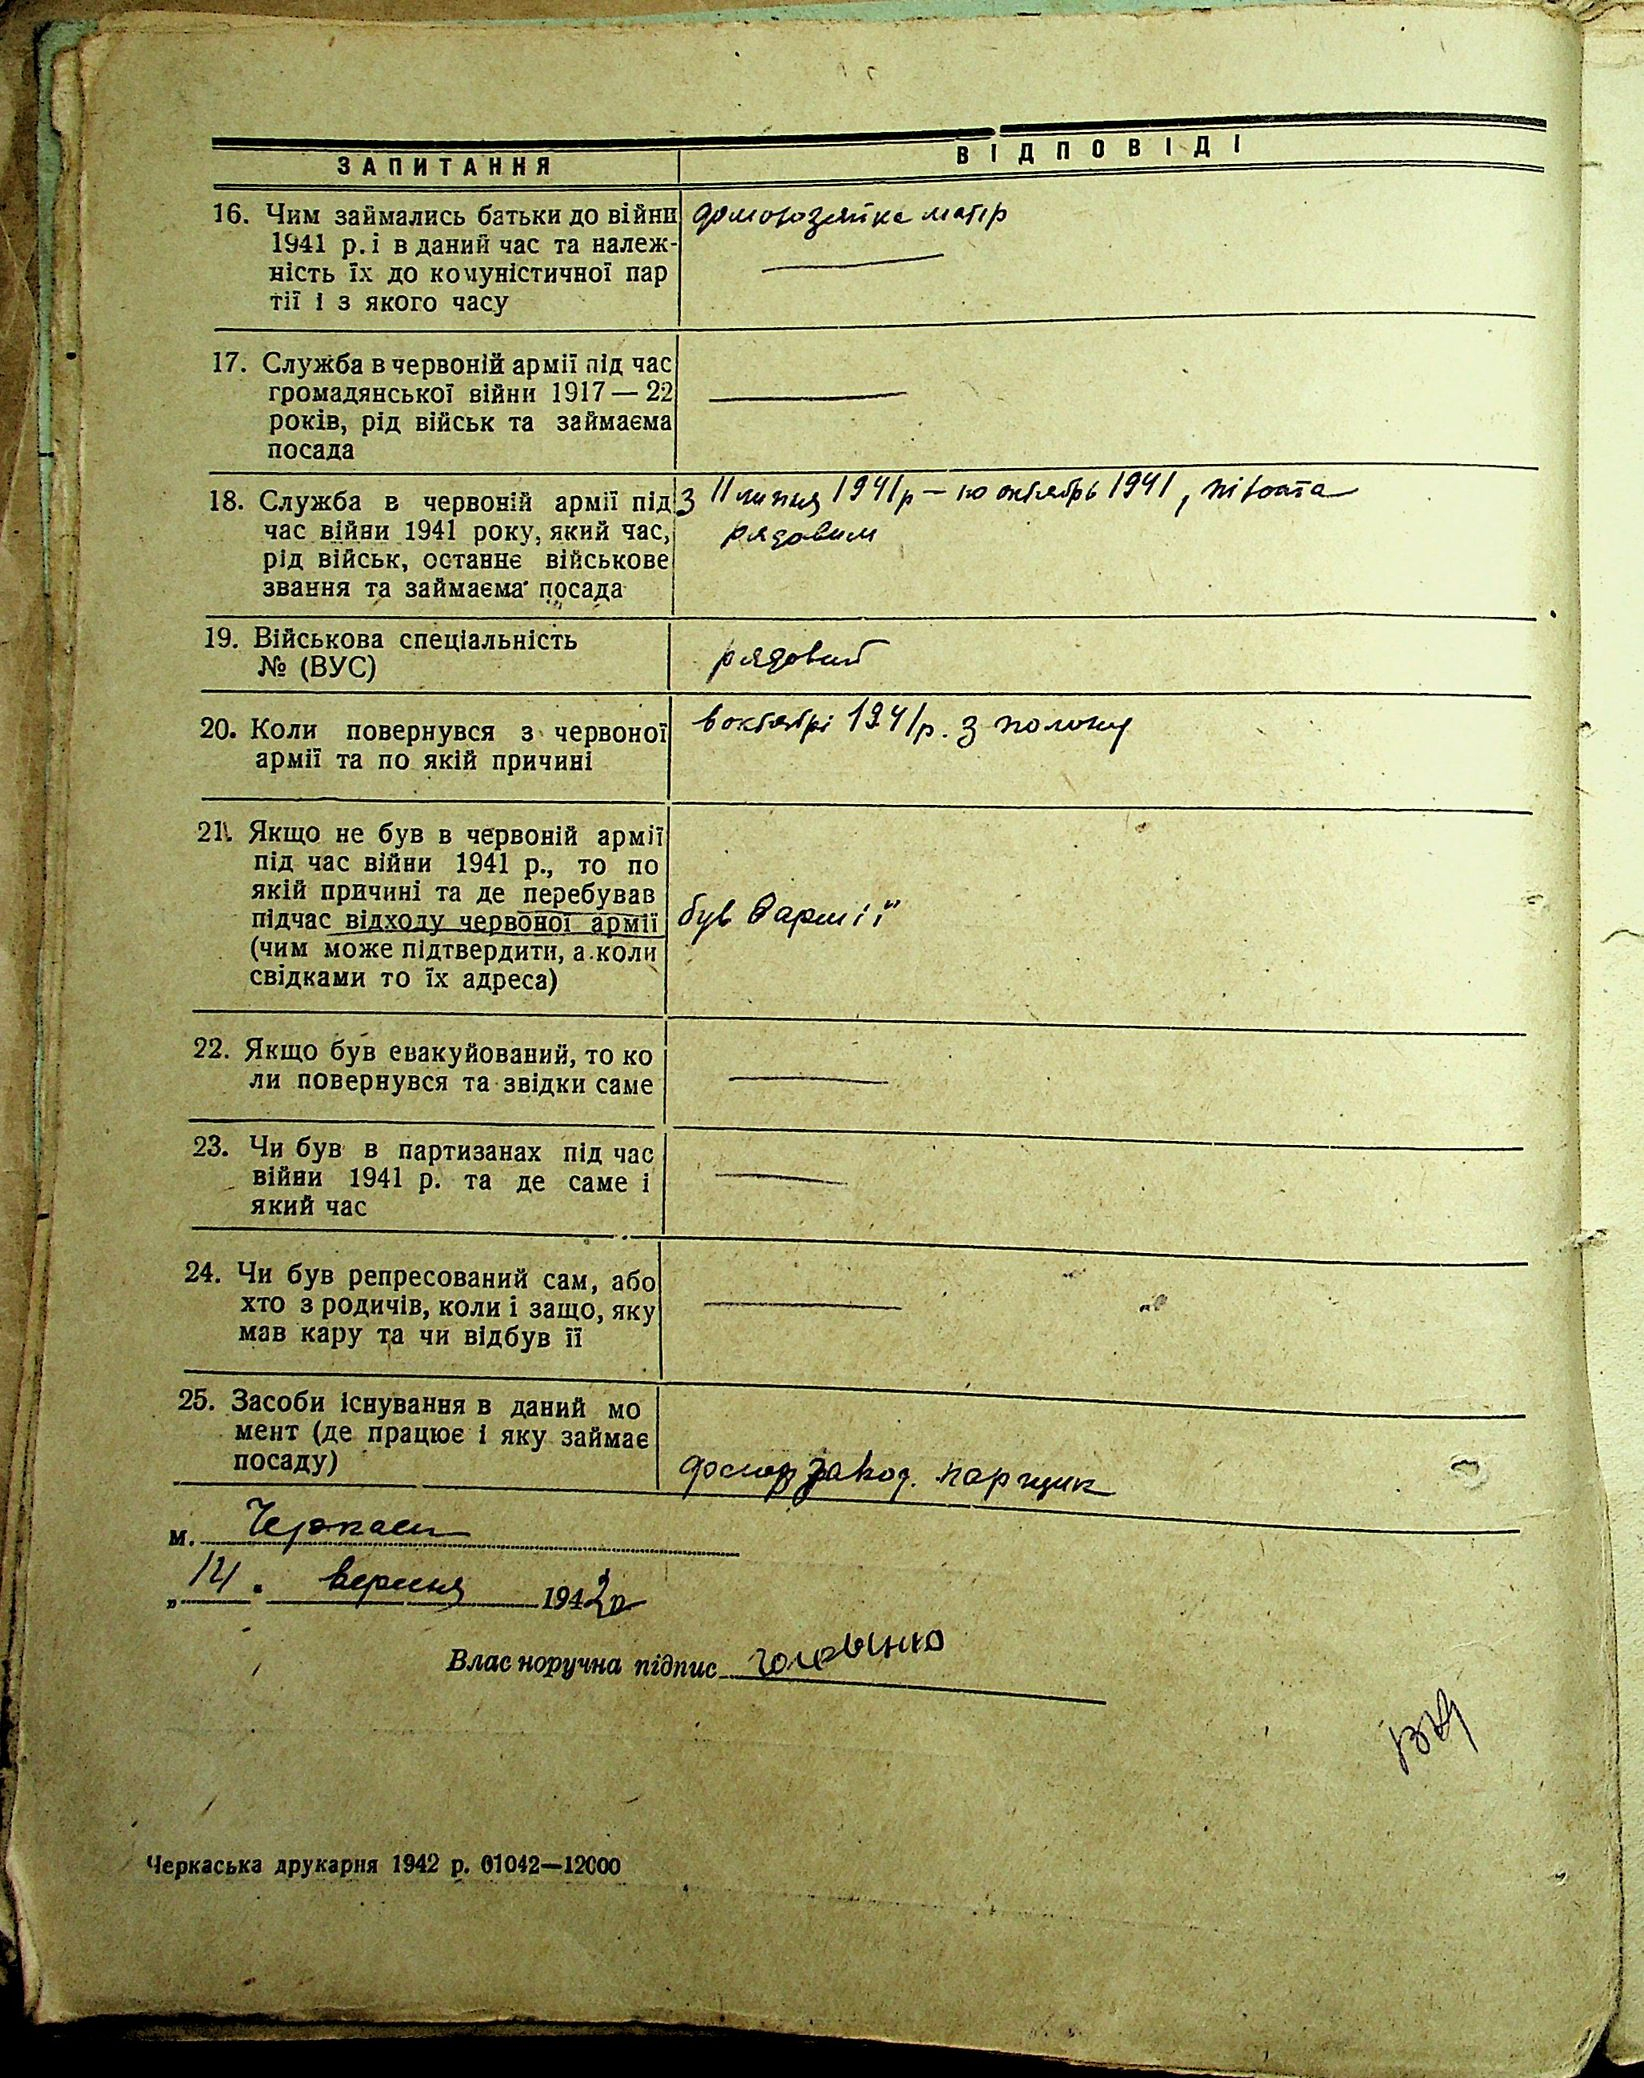 ЗАПИТАННЯ
ВІДПОВІДІ
16. Чим займались батьки до війни
1941 р. і в даний час та належ-
ність їх до комуністичної пар
тії і з якого часу
домохозяйка матір
17. Служба в червоній армії під час
громадянської війни 1917—22
років, рід військ та займаєма
посада
18. Служба в червоній армії під
час війни 1941 року, який час,
рід військ, останнє військове
звання та займаєма посада
З 11 липня 1941 р – по октябрь 1941, піхота
рядовим
19. Військова спеціальність
№ (ВУС)
рядовий
20. Коли повернувся з червоної
армії та по якій причині
в октябрі 1941 р. з полону
21. Якщо не був в червоній армії
під час війни 1941 р., то по
якій причині та де перебував
підчас відходу червоної армії
(чим може підтвердити, а коли
свідками то їх адреса)
був в армії
22. Якщо був евакуйований, то ко
ли повернувся та звідки саме
23. Чи був в партизанах під час
війни 1941 р. та де саме і
який час
24. Чи був репресований сам, або
хто з родичів, коли і защо, яку
мав кару та чи відбув її
25. Засоби існування в даний мо
мент (де працює і яку займає
посаду)
завод. парщик
м. Черкаси
„14. вересня 1942 р
Власноручна підпис
Черкаська друкарня 1942 р. 01042—12000